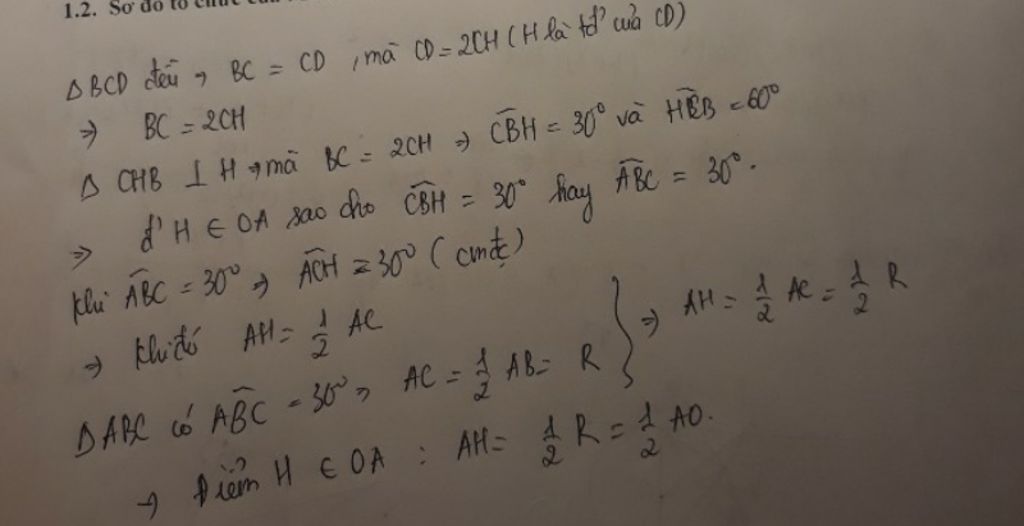 1.2. Sơ đồ tổ chức
Δ BCD đều → BC = CD , mà CD = 2CH ( H là tđ' của CD)
⇒ BC = 2CH
Δ CHB ⊥ H → mà BC = 2CH ⇒ CBH = 30° và HCB = 60°
⇒ đ' H ∈ OA sao cho CBH = 30° hay ABC = 30°.
Khi ABC = 30° ⇒ ACH = 30° ( cmtr)
⇒ Khi đó AH = 1/2 AC
Δ ABC có ABC = 30° ⇒ AC = 1/2 AB = R } ⇒ AH = 1/2 AC = 1/2 R
→ Điểm H ∈ OA : AH = 1/2 R = 1/2 AO.